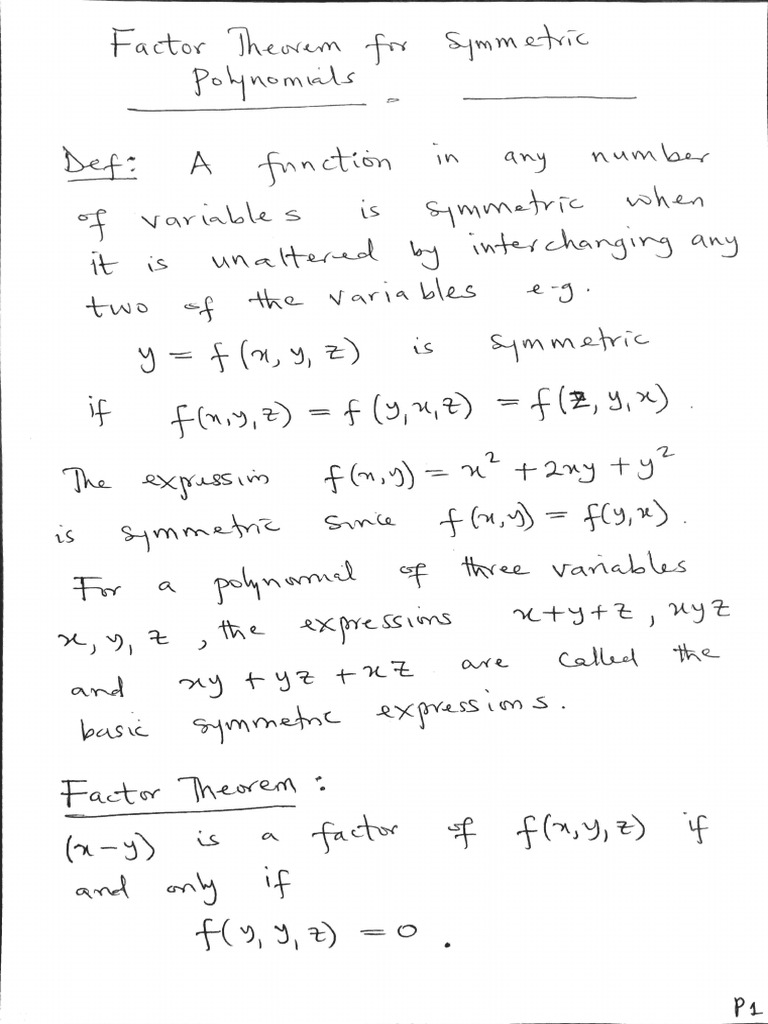 Factor Theorem for Symmetric
Polynomials
Def: A function in any number
of variables is symmetric when
it is unaltered by interchanging any
two of the variables e-g.
y = f(x, y, z) is symmetric
if f(x,y,z) = f(y,x,z) = f(z, y, x).
The expression f(x,y) = x² + 2xy + y²
is symmetric since f(x,y) = f(y,x).
For a polynomial of three variables
x, y, z, the expressions x+y+z, xyz
and xy + yz + xz are called the
basic symmetric expressions.
Factor Theorem:
(x-y) is a factor of f(x,y,z) if
and only if
f(y, y, z) = 0.
P1